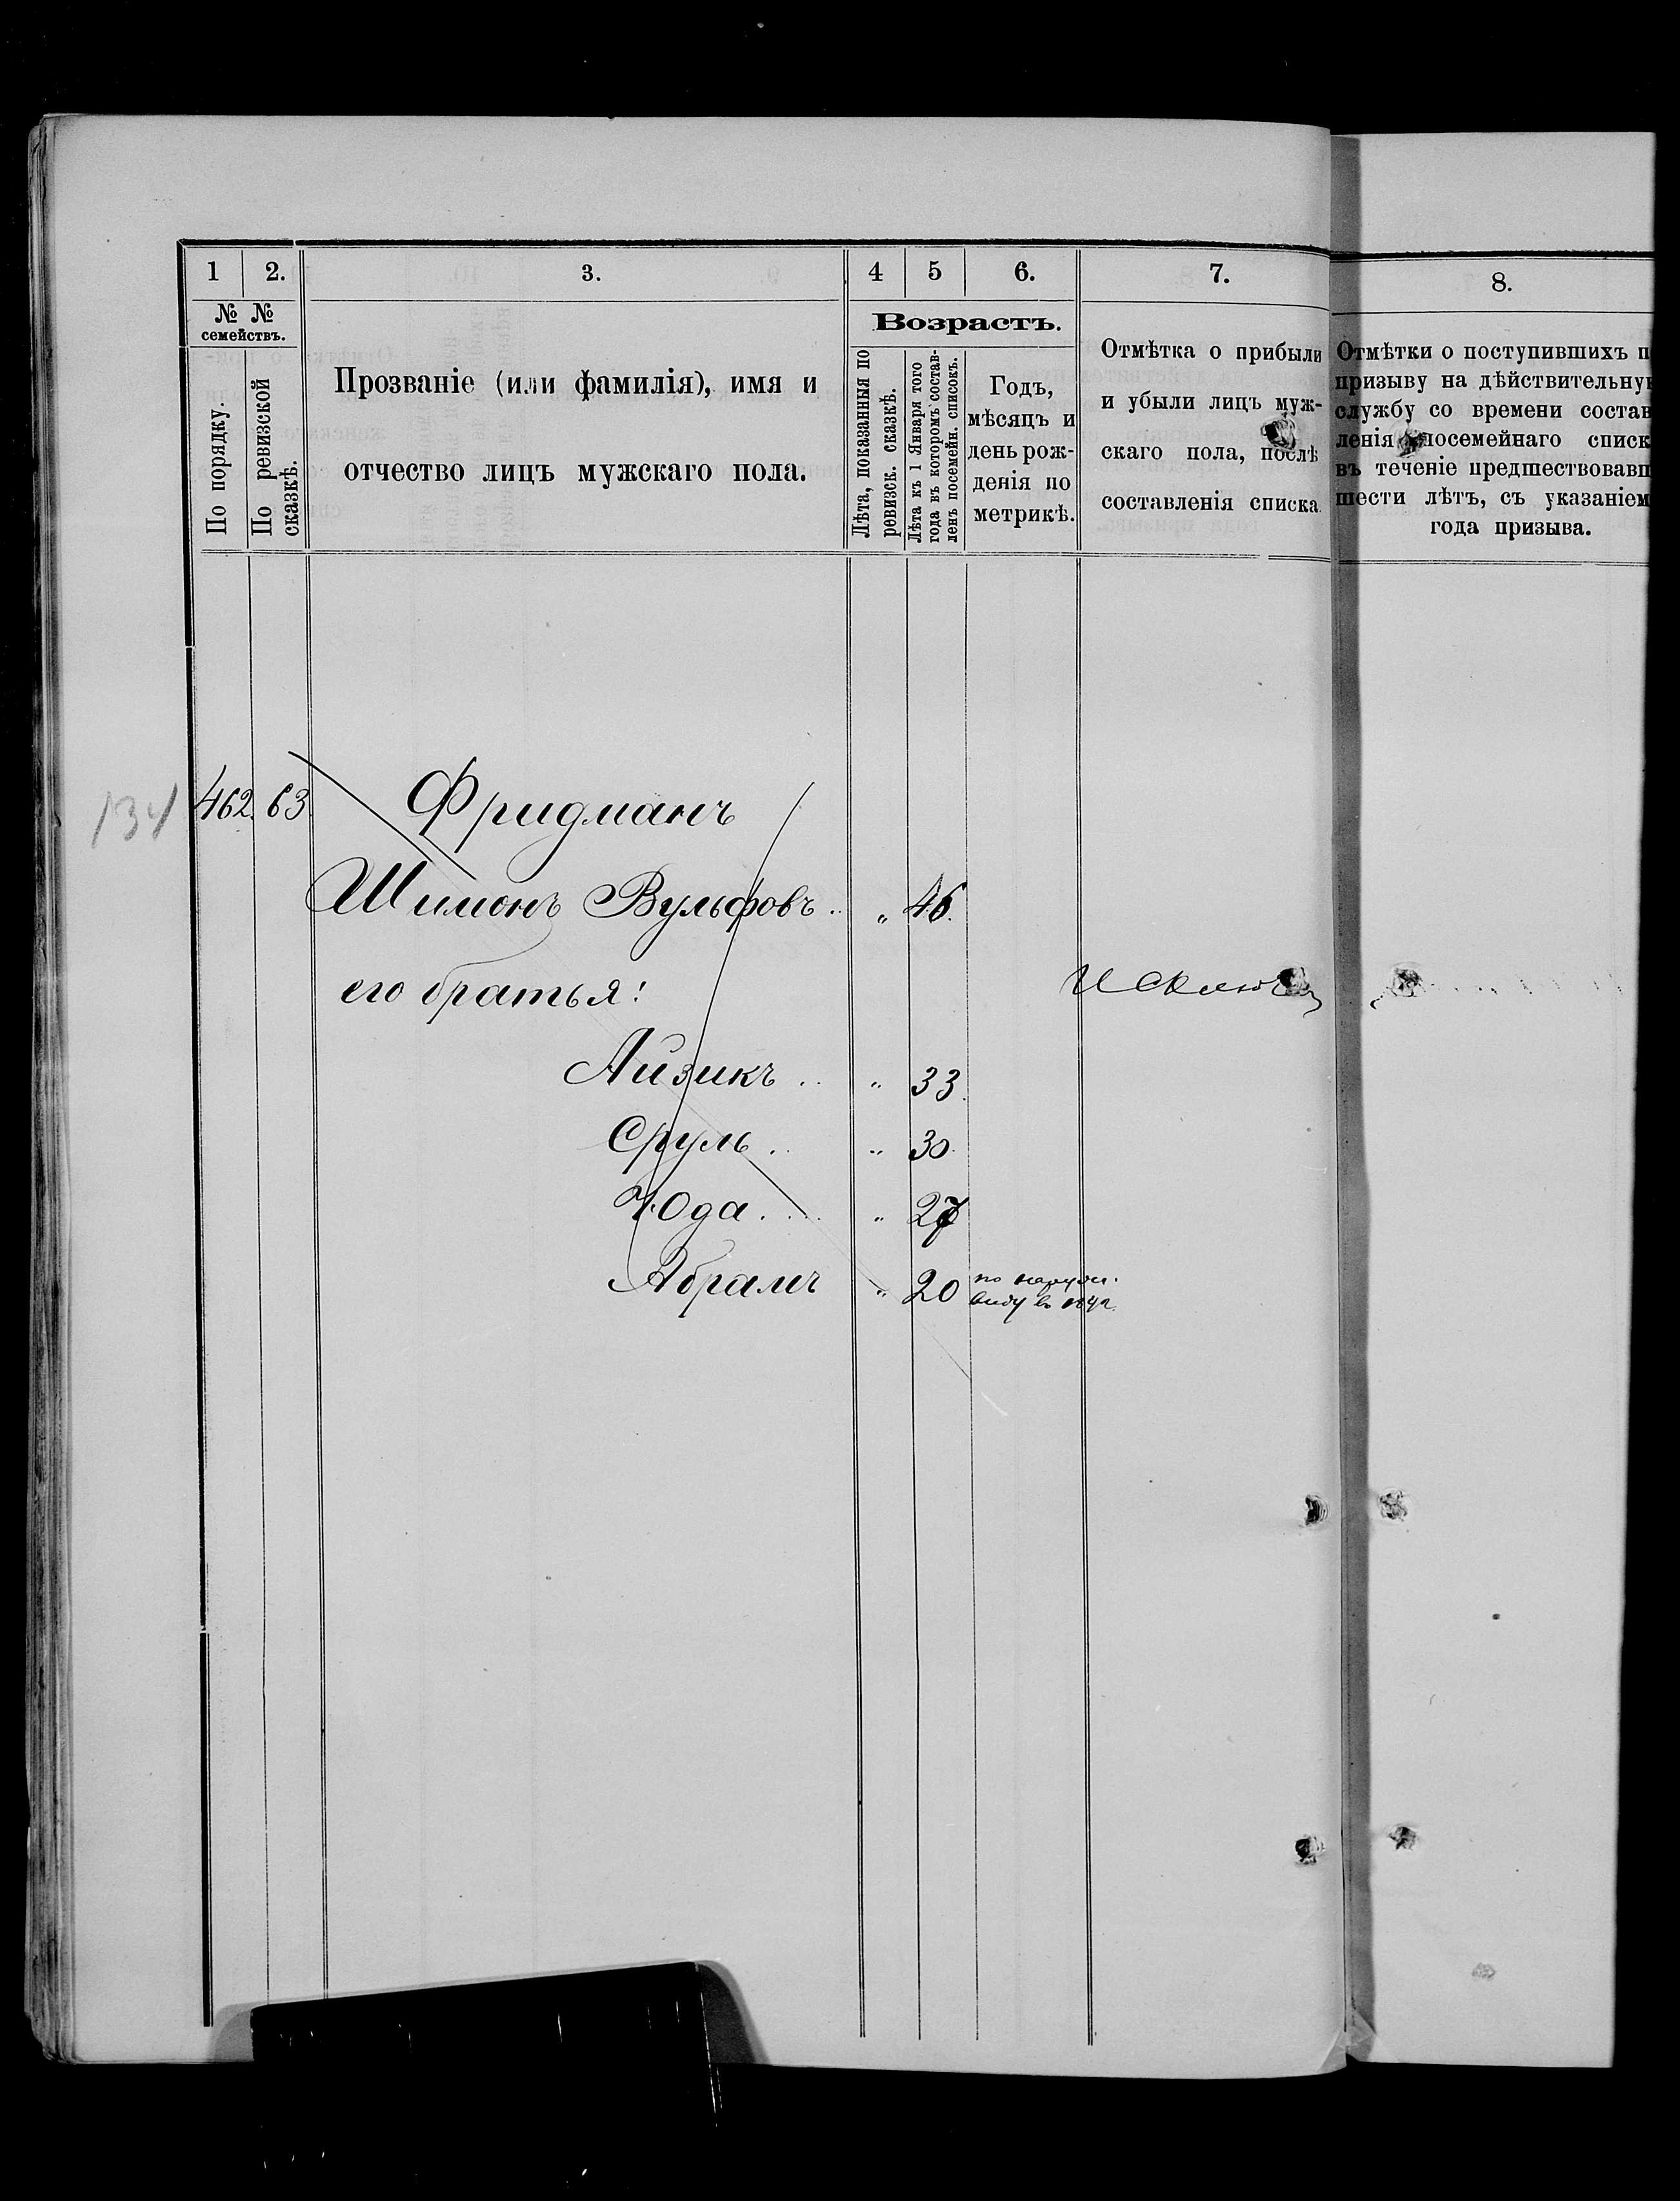 1 2. 3. 4 5 6. 7. 8.
№ №
семействъ.
По порядку.
По ревизской
сказкѣ.
Прозваніе (или фамилія), имя и
отчество лицъ мужскаго пола.
Возрастъ.
Лѣта, показанныя по
ревизск. сказкѣ.
Лѣта къ 1 Января того
года въ которомъ состав-
ленъ посемейн. списокъ.
Годъ,
мѣсяцъ и
день рож-
денія по
метрикѣ.
Отмѣтка о прибыли
и убыли лицъ муж-
скаго пола, послѣ
составленія списка.
Отмѣтки о поступившихъ п
призыву на дѣйствительну
службу со времени состав
ленія посемейнаго списк
въ теченіе предшествовавш
шести лѣтъ, съ указаніем
года призыва.
134 462. 63. Фридманъ
Шимонъ Вульфовъ .. „ 46.
его братья:
Исключ
Айзикъ .. „ 33.
Сруль .. „ 30.
Юда .... „ 27
Абрамъ „ 20 по наружн.
виду въ